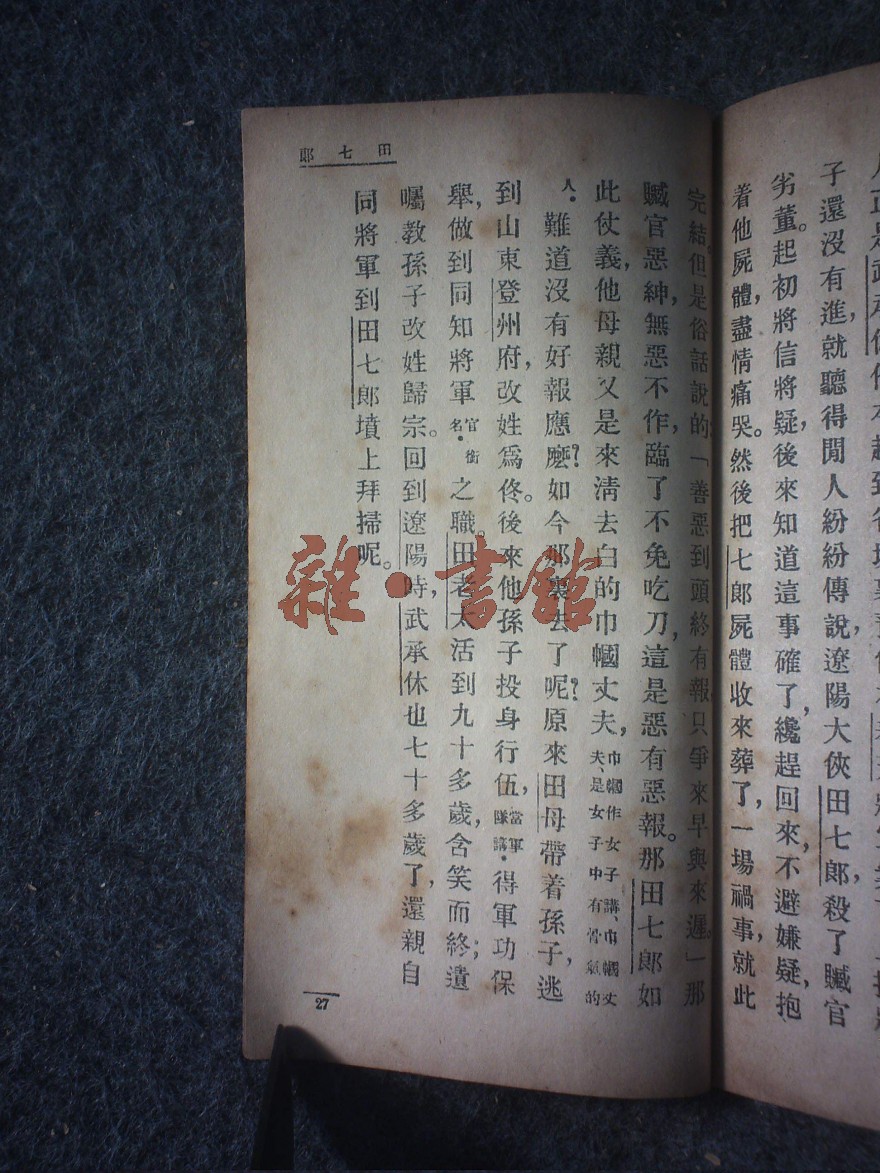 子還沒有進，就聽得閒人紛紛傳說，遼陽大俠田七郎，殺了贓官
劣董。起初將信將疑，後來知道這事確了，纔趕回來，不避嫌疑，抱
着他屍體，盡情痛哭。然後把七郎屍體收來葬了，一場禍事，就此
田七郎
完結。但是俗話說的，「善惡到頭終有報，只爭來早與來遲。」那
贓官惡紳，無惡不作，臨了不免吃刀，這是惡有惡報。那田七郎如
此仗義，他母親又是來淸去白的巾幗丈夫，巾幗作女子講、巾幗丈夫是女子中有骨氣的
人・難道沒有好報應麽？如今那裏去了呢？原來田母帶着孫子，逃
到山東登州府，改姓爲佟。後來他孫子投身行伍，當軍隊講・得軍功保
舉，做到同知將軍官銜名・之職。田老太活到九十多歲，含笑而終；遺
囑教孫子改姓歸宗。回到遼陽時，武承休也七十多歲了，還親自
同將軍到田七郎墳上拜掃呢。
27
雜・書館